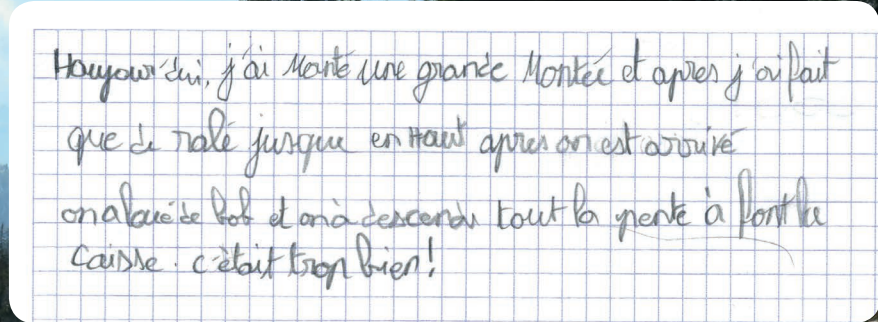 Houjour'dui, j'ai monté une grande Montée et apres j'ai fait
que de ralé jusque en Haut apres on est arrivé
on a loué de bob et on à descendu tout la pente à font la
caisse. c'était trop bien!